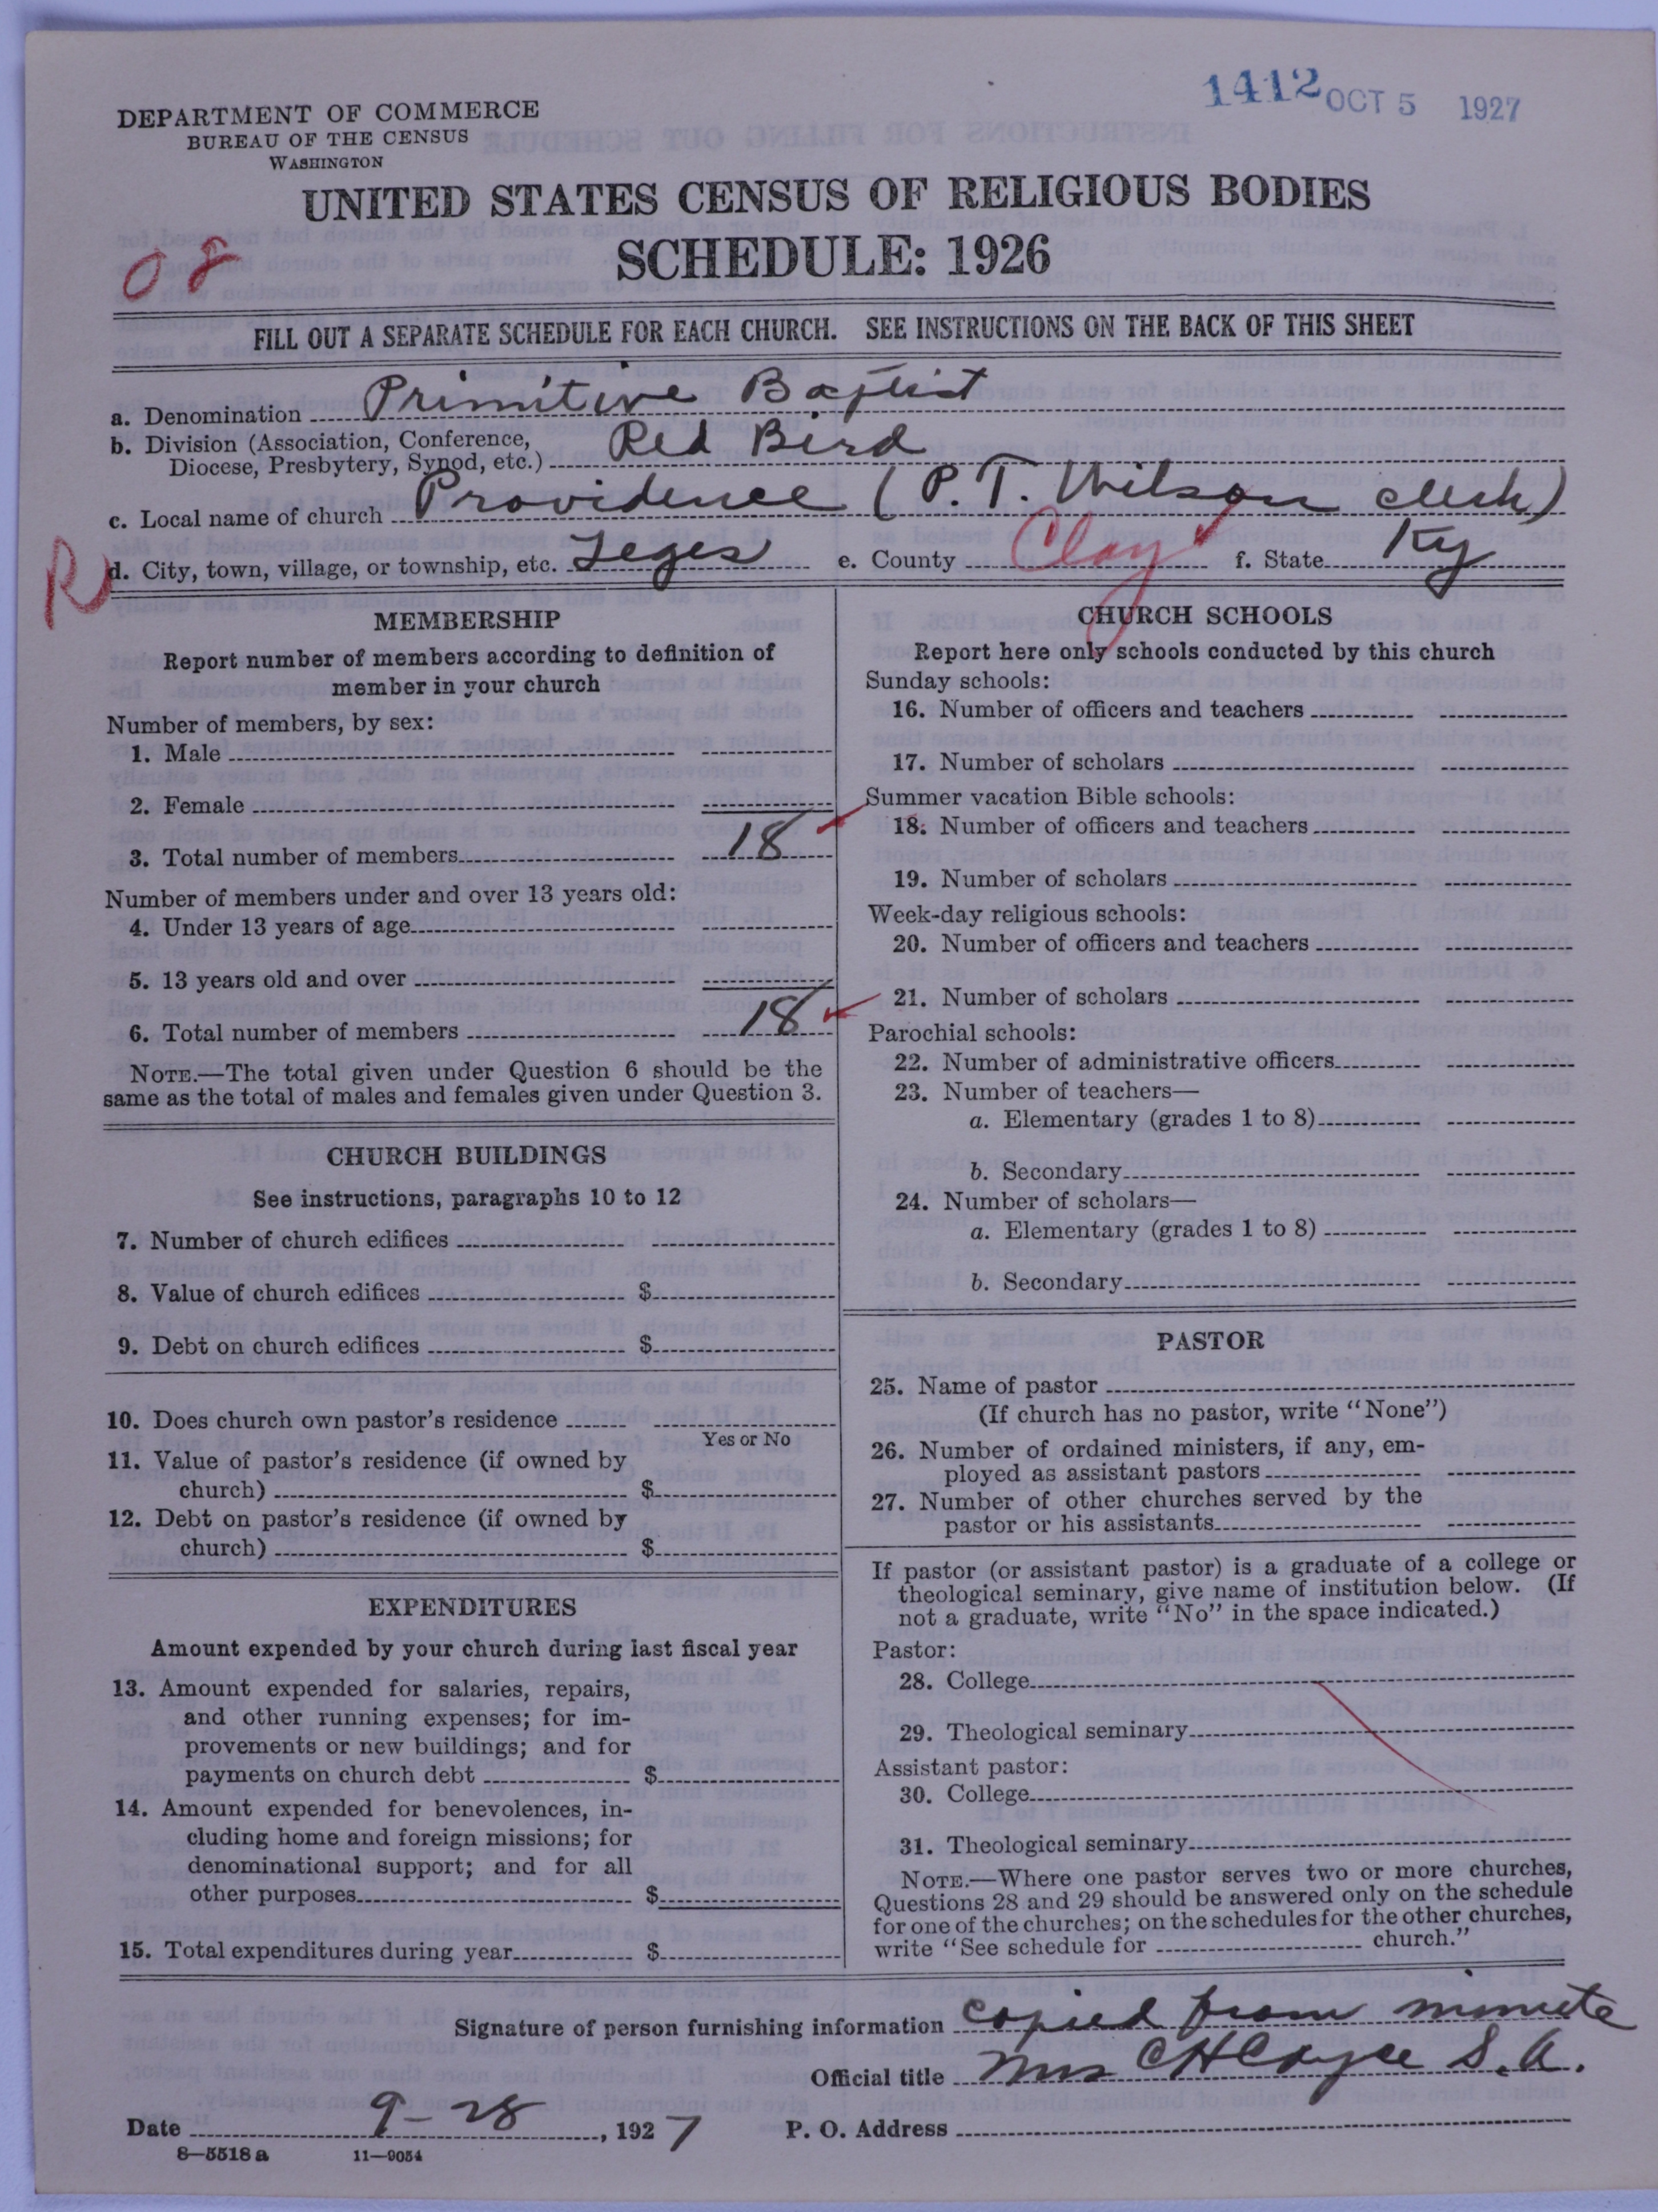 1412 OCT 5 1927
DEPARTMENT OF COMMERCE
BUREAU OF THE CENSUS
WASHINGTON
UNITED STATES CENSUS OF RELIGIOUS BODIES
SCHEDULE: 1926
08
FILL OUT A SEPARATE SCHEDULE FOR EACH CHURCH. SEE INSTRUCTIONS ON THE BACK OF THIS SHEET
a. Denomination Primitive Baptist
b. Division (Association, Conference,
Diocese, Presbytery, Synod, etc.) Red Bird
c. Local name of church Providence (P. T. Wilson clerk)
R d. City, town, village, or township, etc. Leges e. County Clay f. State Ky
MEMBERSHIP
Report number of members according to definition of
member in your church
Number of members, by sex:
1. Male
2. Female
3. Total number of members 18
Number of members under and over 13 years old:
4. Under 13 years of age
5. 13 years old and over
6. Total number of members 18
NOTE.—The total given under Question 6 should be the
same as the total of males and females given under Question 3.
CHURCH BUILDINGS
See instructions, paragraphs 10 to 12
7. Number of church edifices
8. Value of church edifices $
9. Debt on church edifices $
10. Does church own pastor's residence
Yes or No
11. Value of pastor's residence (if owned by
church) $
12. Debt on pastor's residence (if owned by
church) $
EXPENDITURES
Amount expended by your church during last fiscal year
13. Amount expended for salaries, repairs,
and other running expenses; for im-
provements or new buildings; and for
payments on church debt $
14. Amount expended for benevolences, in-
cluding home and foreign missions; for
denominational support; and for all
other purposes $
15. Total expenditures during year $
CHURCH SCHOOLS
Report here only schools conducted by this church
Sunday schools:
16. Number of officers and teachers
17. Number of scholars
Summer vacation Bible schools:
18. Number of officers and teachers
19. Number of scholars
Week-day religious schools:
20. Number of officers and teachers
21. Number of scholars
Parochial schools:
22. Number of administrative officers
23. Number of teachers—
a. Elementary (grades 1 to 8)
b. Secondary
24. Number of scholars—
a. Elementary (grades 1 to 8)
b. Secondary
PASTOR
25. Name of pastor
(If church has no pastor, write "None")
26. Number of ordained ministers, if any, em-
ployed as assistant pastors
27. Number of other churches served by the
pastor or his assistants
If pastor (or assistant pastor) is a graduate of a college or
theological seminary, give name of institution below. (If
not a graduate, write "No" in the space indicated.)
Pastor:
28. College
29. Theological seminary
Assistant pastor:
30. College
31. Theological seminary
NOTE.—Where one pastor serves two or more churches,
Questions 28 and 29 should be answered only on the schedule
for one of the churches; on the schedules for the other churches,
write "See schedule for church."
Signature of person furnishing information copied from minute
Official title Mrs C H Cayce S. A.
Date 9-28, 1927 P. O. Address
8—5518 a 11—9054